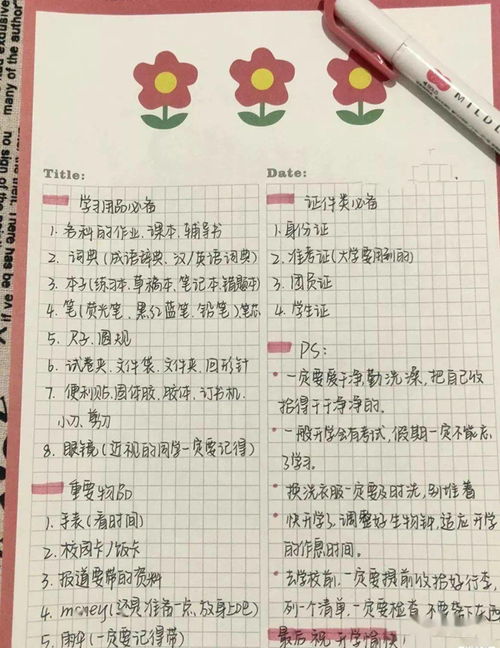 many of the author
no sign of the
if ve be
There has
MILDL
Title:
学习用品必备
1. 各科的作业、课本、辅导书
2. 词典(成语辞典、汉/英语词典)
3. 本子(练习本、草稿本、笔记本、错题本)
4. 笔(荧光笔、黑红蓝笔、铅笔)笔芯
5. 尺子、圆规
6. 试卷夹、文件袋、文件夹、回形针
7. 便利贴、固体胶、胶体、订书机、
小刀、剪刀
8. 眼镜(近视的同学一定要记得)
重要物品
1. 手表(看时间)
2. 校园卡/饭卡
3. 报道要带的资料
4. money(还是准备一点,放身上吧)
5. 雨伞(一定要记得带)
Date:
证件类必备
1. 身份证
2. 准考证(大学要用到的)
3. 团员证
4. 学生证
PS:
·一定要爱干净,勤洗澡,把自己收
拾得干干净净的.
·一般开学会有考试,假期一定不能忘
了学习.
·换洗衣服一定要及时洗,别堆着
·快开学了,调整好生物钟,适应开学
的作息时间.
·去学校前,一定要提前收拾好行李,
列一个清单,一定要检查,不要落下东西
最后祝开学愉快!